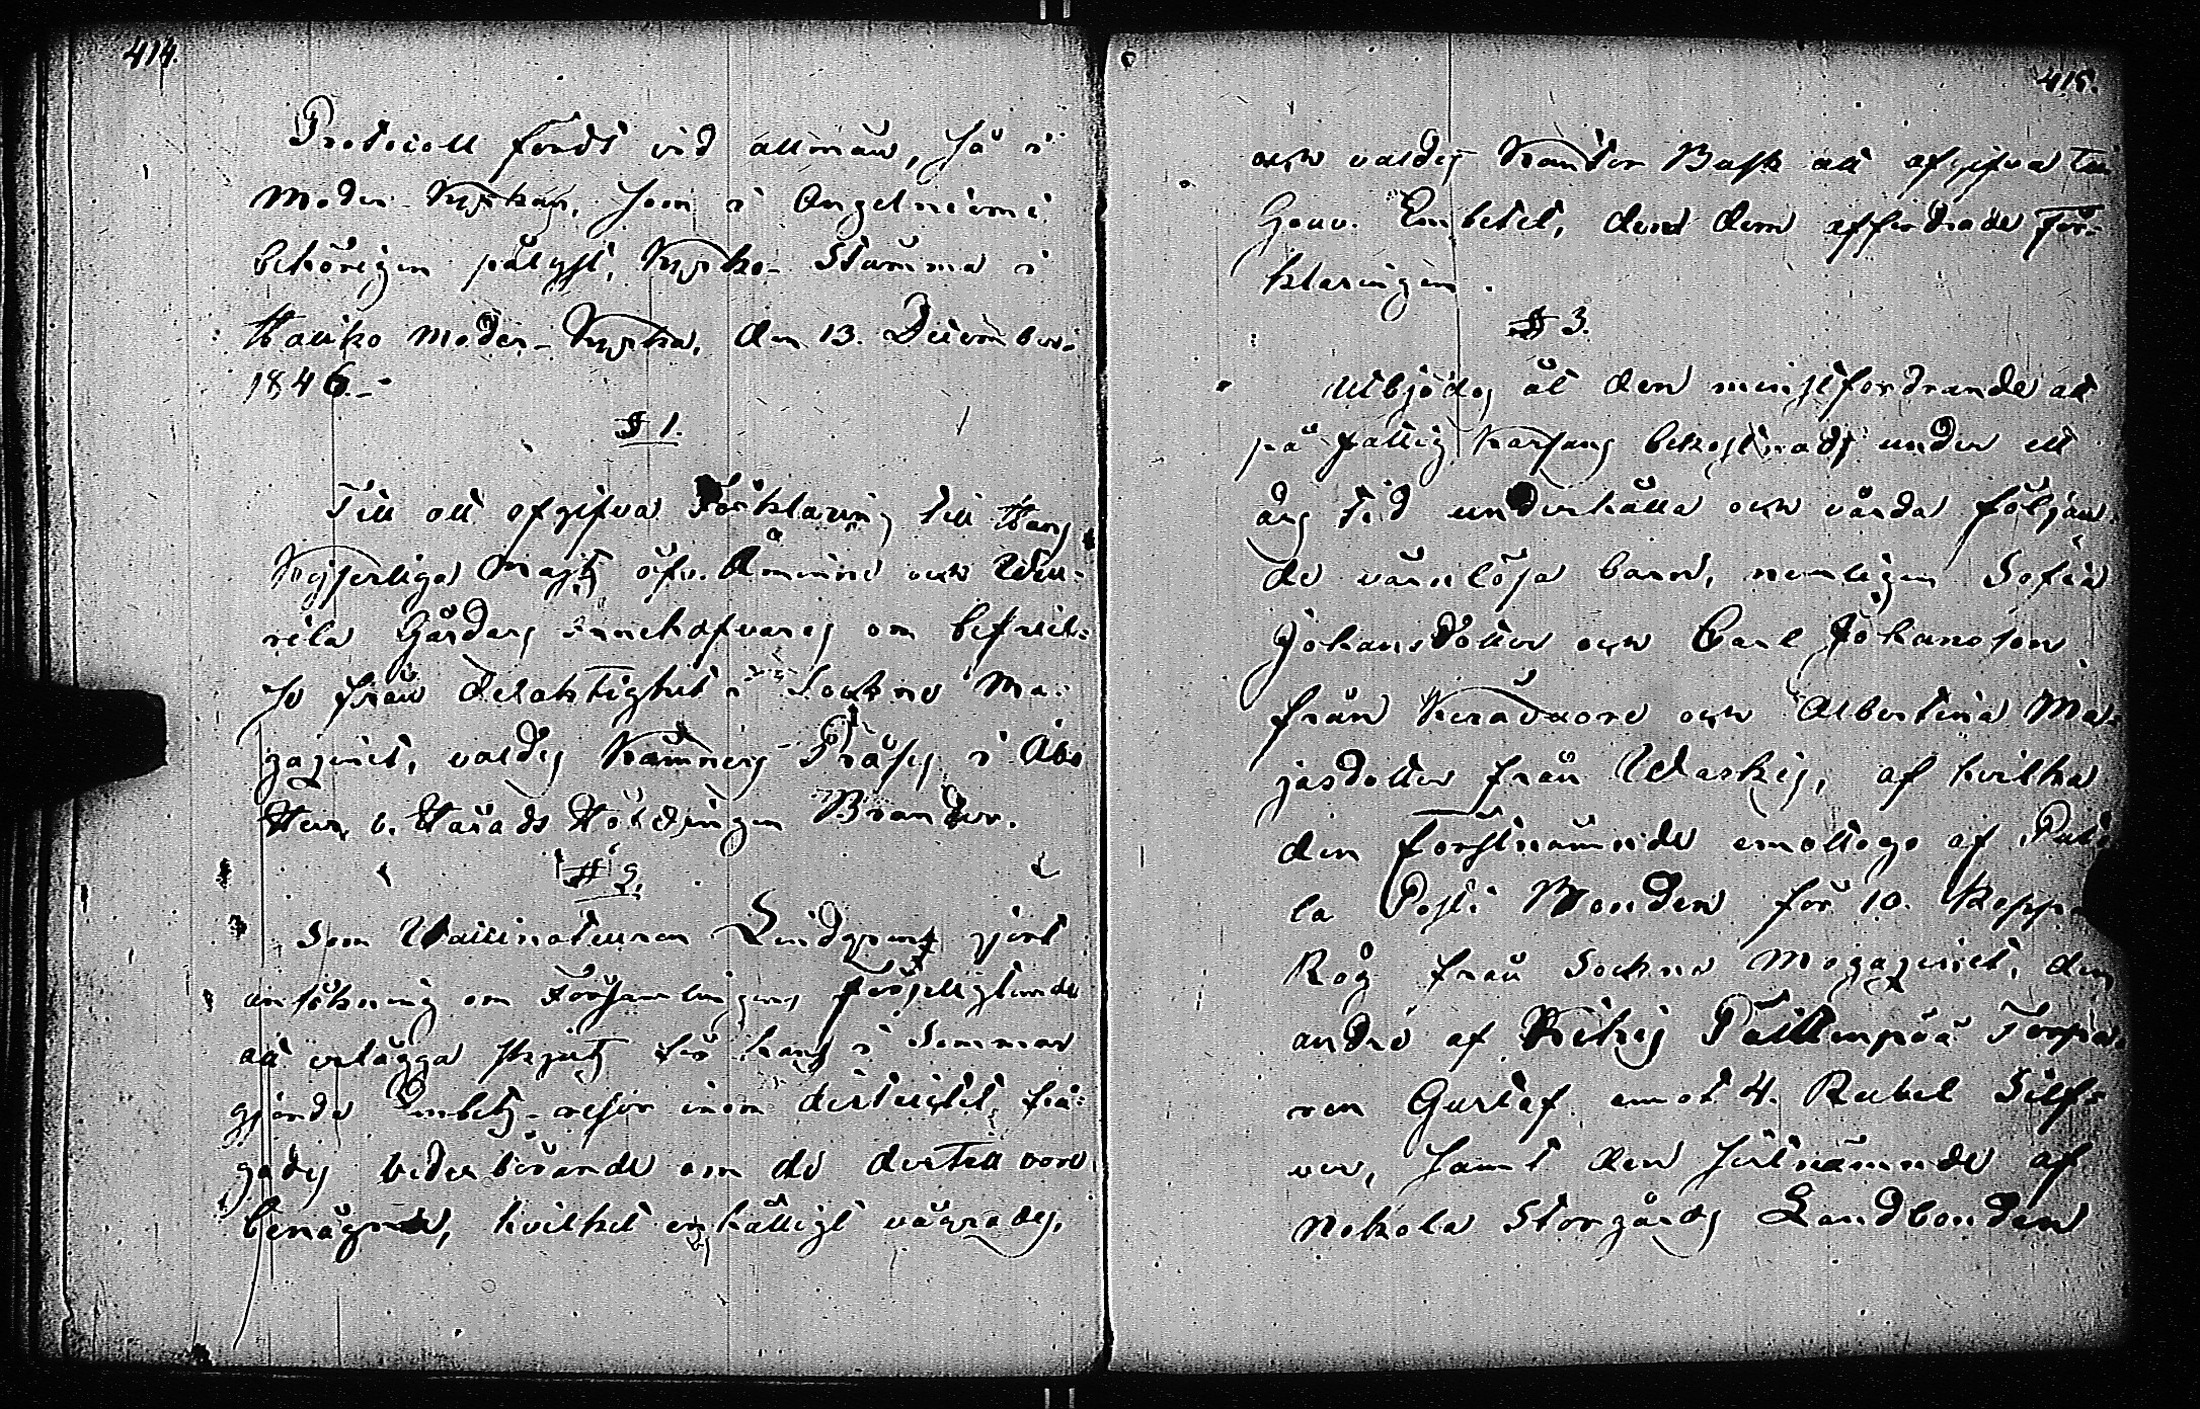 414.
Protocoll fördt vid allmän, så i
Moder-Kyrkan, som i Angelniemi
behörigen pålyst, Kyrko-Stämma i
Haliko Moder-Kyrka, den 13. December
1846.-
§ 1.
Till att afgifva Förklaring till Hans
Kejserliga Majts öfv. Åminne och Wiu-
rila Gårdars innehafvares om befriel-
se från delaktighet i Sockne Ma-
gazinet, valdes Kämners Präses i Åbo
Herr v. Härads Höfdingen Brander.
§ 2.
Som Vaccinateuren Lindqvist gjort
ansökning om Församlingens
att erlägga skjuts för hans i Sommar
gjorda Embets-resor inom districtet, frå-
gades vederbörande om de dertill voro
benägna, hvilket enhälligt vägrades,
415.
och valdes Kantor Bask att afgifva till
Gouv. Embetet, den dem affordrade För-
klaringen.
§ 3.
Utbjödos åt den minstfordrande att
på fattig kassans bekostnad under ett
års tid underhålla och vårda följan-
de värnlösa barn, nemligen Sofia
Johansdotter och Carl Johansson
från Keravuore och Albertina Ma-
jasdotter från Waskis, af hvilka
den förstnämnde emottogs af
la Posti Bonden för 10. Kappar
Råg från Sockne Magazinet, den
andre af Kikis Torpa-
ren Gustaf emot 4. Rubel Silf-
ver, samt den sistnämnde af
Nokola Storgårds Landbonden